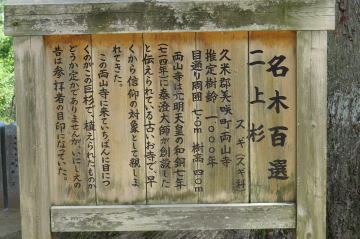 名木百選
二上杉
スギ(スギ科)
久米郡美咲町両山寺
推定樹齢一〇〇〇年
目通り周囲七・五m 樹高四〇m
両山寺は元明天皇の和銅七年
(七一四年)に泰澄大師が創設した
と伝えられている古いお寺で、早
くから信仰の対象として親しま
れてきた。
この両山寺に来ていちばんに目につ
くのがこの巨杉で、植えられたものか
どうか定かでありませんが、いにしえの
昔は参拝者の目印になっていた。